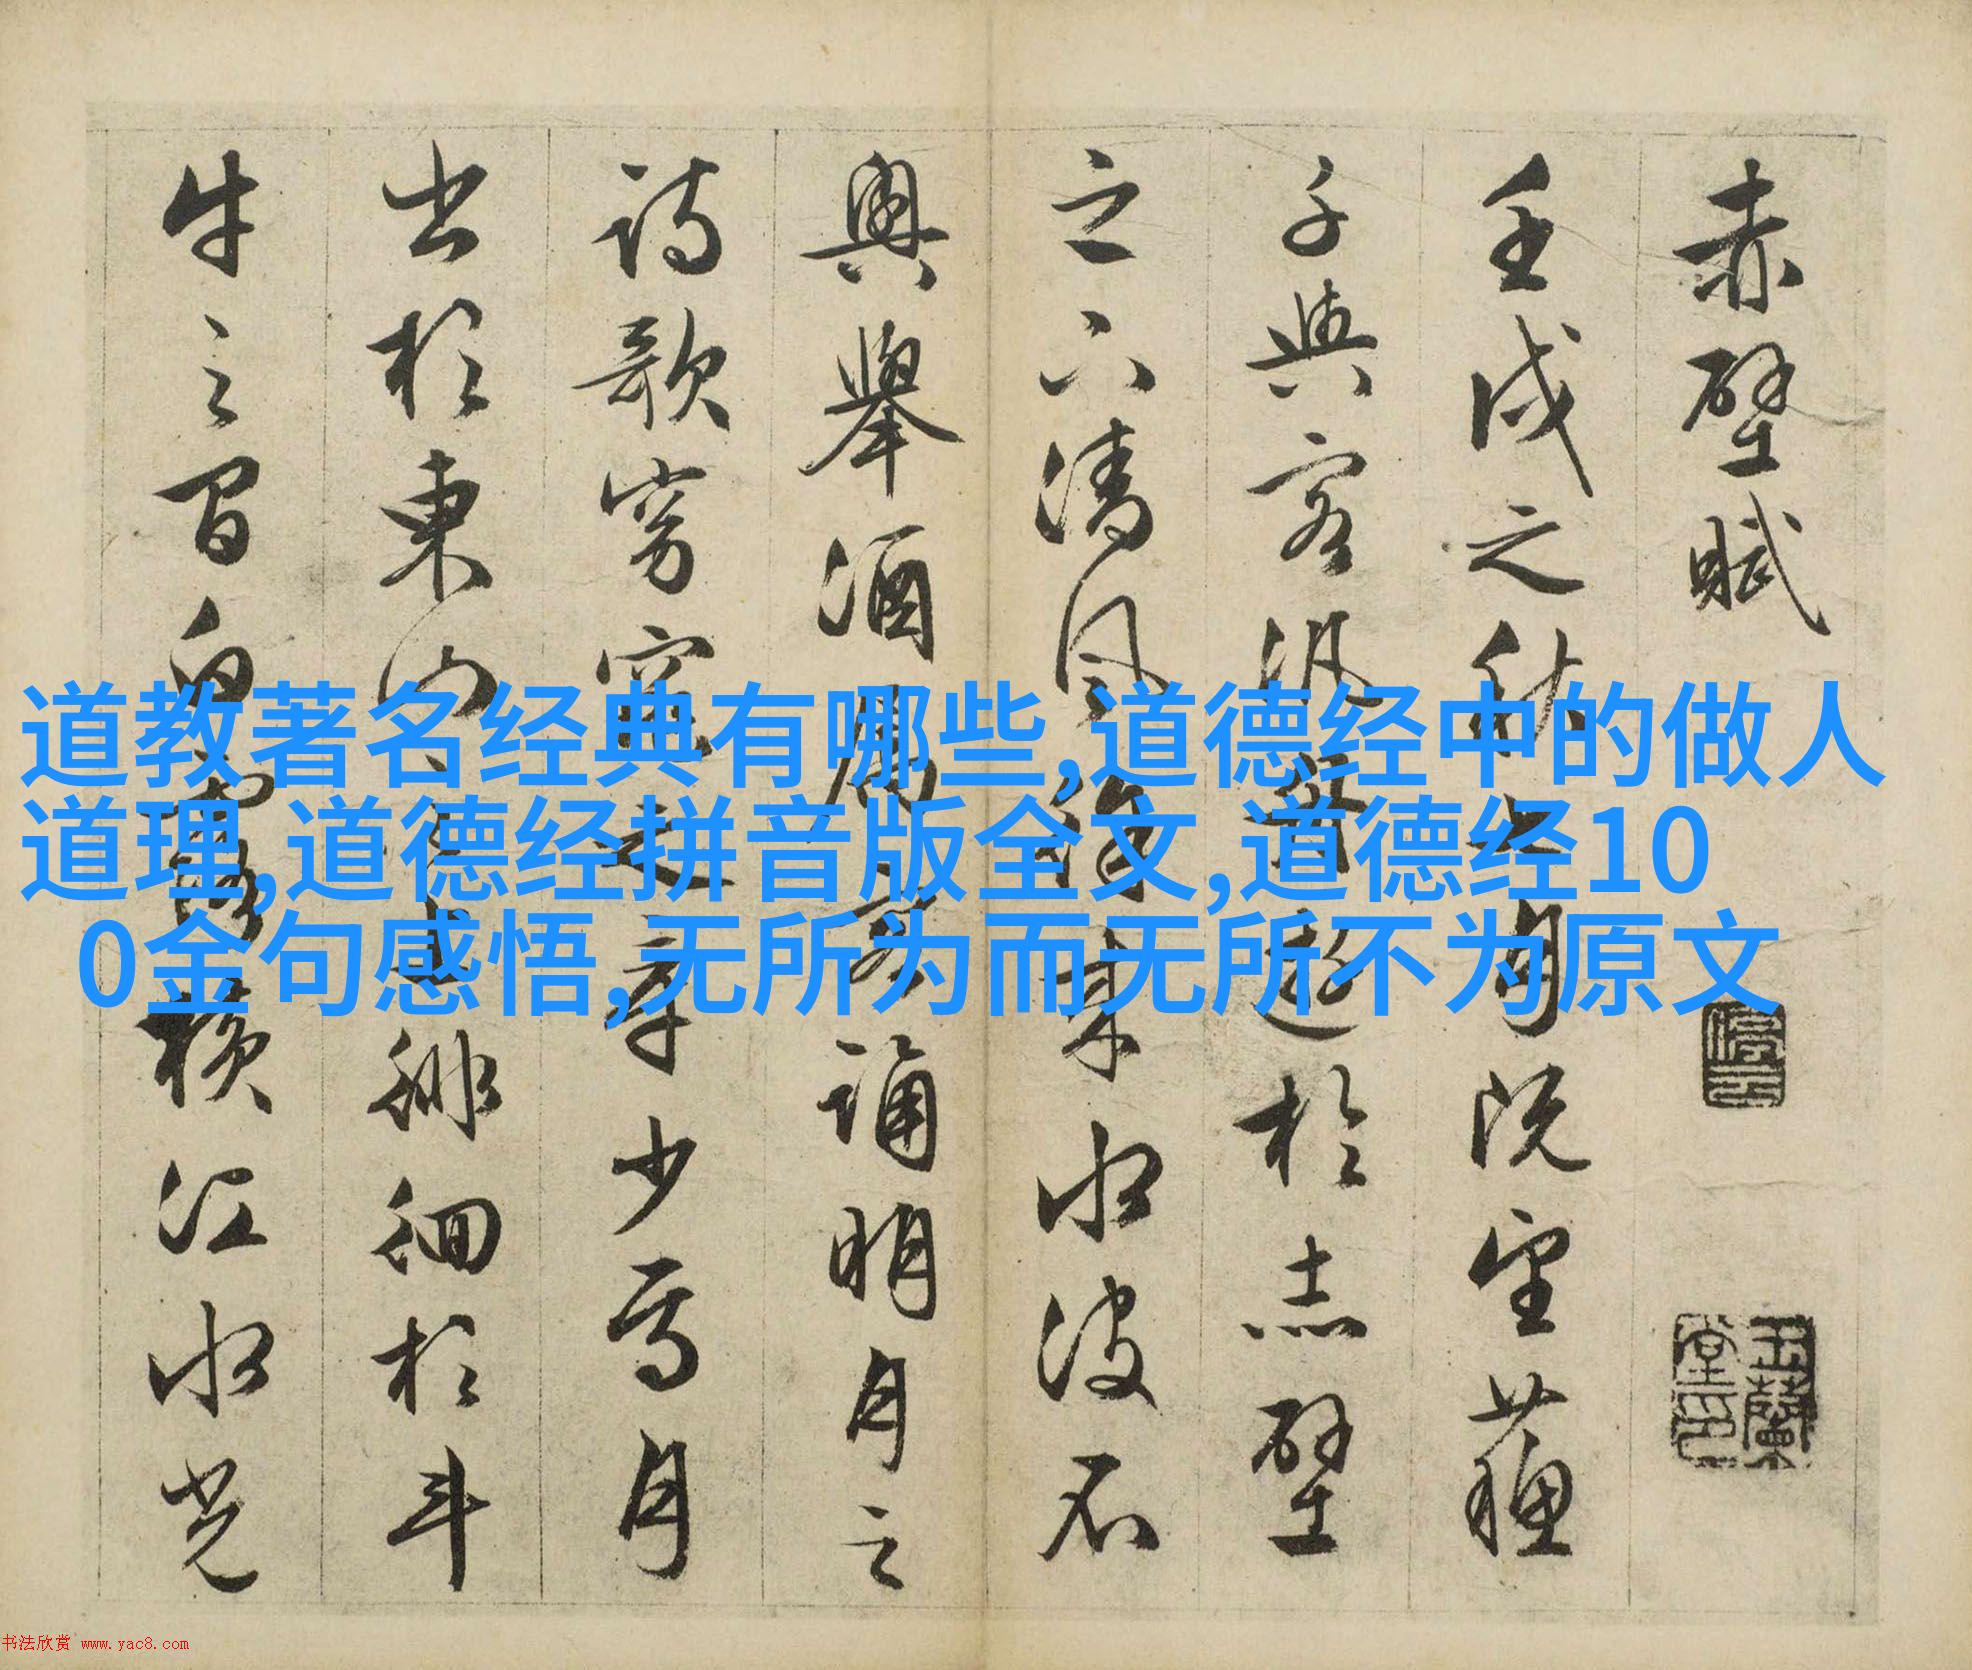 赤壁賦
壬戌之秋七月既望蘇
子與客汎舟遊於赤壁
之下清風徐來水波不
興舉酒屬客誦明月之
詩歌窈窕之章少焉月
出於東山之上徘徊於斗
牛之間白露橫江水光
道教著名经典有哪些,道德经中的做人
道理,道德经拼音版全文,道德经10
0金句感悟,无所为而无所不为原文
停雲
玉蘭堂印
书法欣赏 www.yac8.com